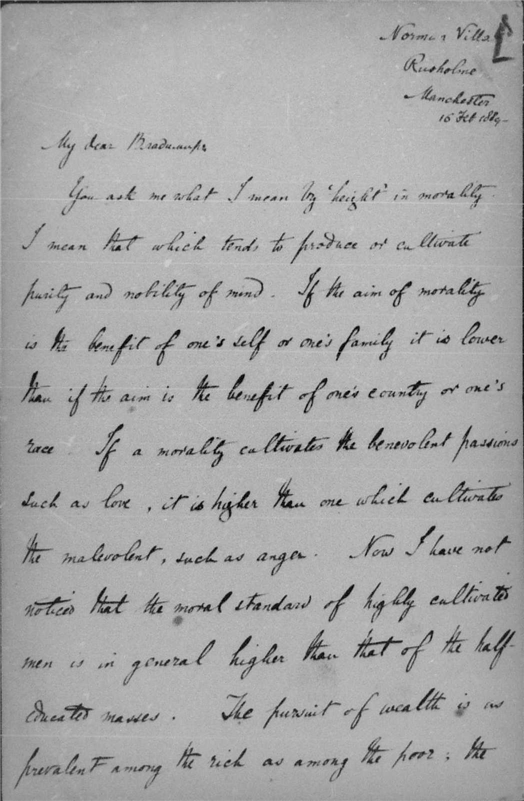 Norman Villa
Rusholme
Manchester
16 Feb 1889
My dear
You ask me what I mean by "height" in morality.
I mean that which tends to produce or cultivate
purity and nobility of mind. If the aim of morality
is the benefit of one's self or one's family it is lower
than if the aim is the benefit of one's country or one's
race. If a morality cultivates the benevolent passions
such as love, it is higher than one which cultivates
the malevolent, such as anger. Now I have not
noticed that the moral standard of highly cultivated
men is in general higher than that of the half-
educated masses. The pursuit of wealth is as
prevalent among the rich as among the poor; the